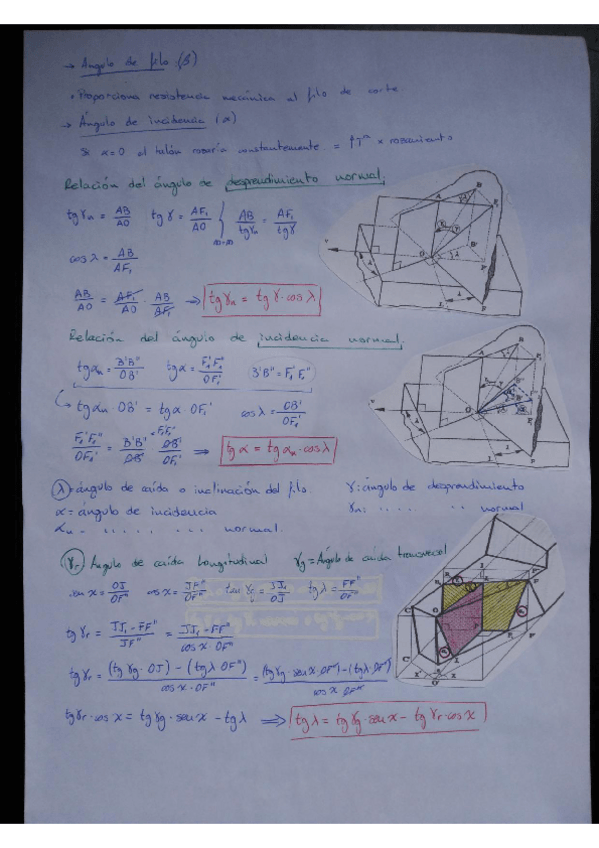 → Ángulo de filo (β)
• Proporciona resistencia mecánica al filo de corte.
→ Ángulo de incidencia (α)
Si α=0 el talón rozaría constantemente = ↑Tª × rozamiento
Relación del ángulo de desprendimiento normal.
tg γn = AB/AO tg γ = AF₁/AO } AO=AO { AB/tg γn = AF₁/tg γ
cos λ = AB/AF₁
AB/AO = AF₁/AO · AB/AF₁ → tg γn = tg γ · cos λ
Relación del ángulo de incidencia normal.
tg αn = B'B''/OB' tg α = F₁'F₁''/OF₁' B'B'' = F₁'F₁''
→ tg αn · OB' = tg α · OF₁' cos λ = OB'/OF₁'
F₁'F₁''/OF₁' = B'B''/OB' · OB'/OF₁' ⇒ tg α = tg αn · cos λ
λ = ángulo de caída o inclinación del filo γ: ángulo de desprendimiento
α = ángulo de incidencia γn: .. . . . .. .. normal
αn = .. . . . . . . .. normal.
γr Ángulo de caída Longitudinal γg = Ángulo de caída transversal
sen x = OJ/OF'' cos x = JF''/OF'' tan γg = JJ₁/OJ tg λ = FF''/OF''
tg γr = JJ₁ - FF''/JF'' = JJ₁ - FF''/cos x · OF''
tg γr = (tg γg · OJ) - (tg λ · OF'')/cos x · OF'' = (tg γg · sen x · OF'') - (tg λ · OF'')/cos x · OF''
tg γr · cos x = tg γg · sen x - tg λ ⇒ tg λ = tg γg · sen x - tg γr · cos x